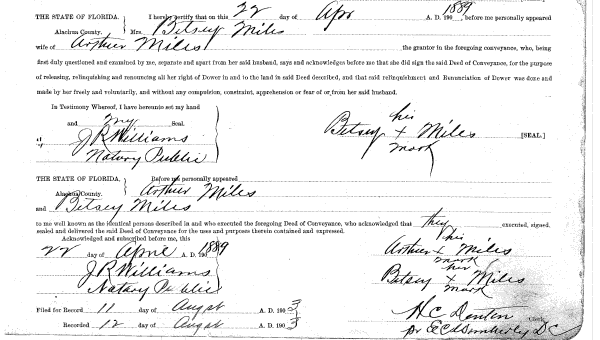 THE STATE OF FLORIDA. I hereby certify that on this 22 day of Apr 1889 A. D. 190 , before me personally appeared
Alachua County. Mrs. Betsey Miles
wife of Arthur Miles the grantor in the foregoing conveyance, who, being
first duly questioned and examined by me, separate and apart from her said husband, says and acknowledges before me that she did sign the said Deed of Conveyance, for the purpose
of releasing, relinquishing and renouncing all her right of Dower in and to the land in said Deed described, and that said relinquishment and Renunciation of Dower was done and
made by her freely and voluntarily, and without any compulsion, constraint, apprehension or fear of or from her said husband.
In Testimony Whereof, I have hereunto set my hand
and my Seal.
at J R Williams
of Notary Public
his
Betsey + Miles [SEAL.]
mark
THE STATE OF FLORIDA. Before me personally appeared
Alachua County. Arthur Miles
and Betsey Miles
to me well known as the identical persons described in and who executed the foregoing Deed of Conveyance, who acknowledged that they executed, signed,
sealed and delivered the said Deed of Conveyance for the uses and purposes therein contained and expressed.
Acknowledged and subscribed before me, this
22 day of April A. D. 190 1889
J R Williams
Notary Public
his
Arthur + Miles
mark
her
Betsey + Miles
mark
Filed for Record 11 day of Augst A. D. 190 3
Recorded 12 day of Augst A. D. 190 3
H C Denton Clerk
pr D C